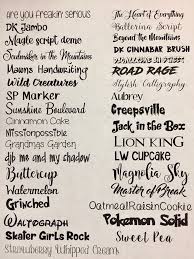 are you freakin serious
DK Jambo
Magic script demo
in the Mountains
Mawns Handwriting
Wild Creatures
SP Marker
Sunshine Boulevard
Cinnamon Cake
Missionpossible
Grandmas Garden
djb me and my shadow
Buttercup
Watermelon
Grinched
Waltograph
Skater Girls Rock
Strawberry Whipped Cream
The Heart of Everything
Ballerina Script
Beyond the Mountains
DK CINNABAR BRUSH
Mountains
ROAD RAGE
Stylish Calligraphy
Aubrey
Creepsville
Jack in the Box
LION KING
LW CUPCAKE
Magnolia Sky
Master of Break
OatmealRaisinCookie
Pokemon Solid
Sweet Pea